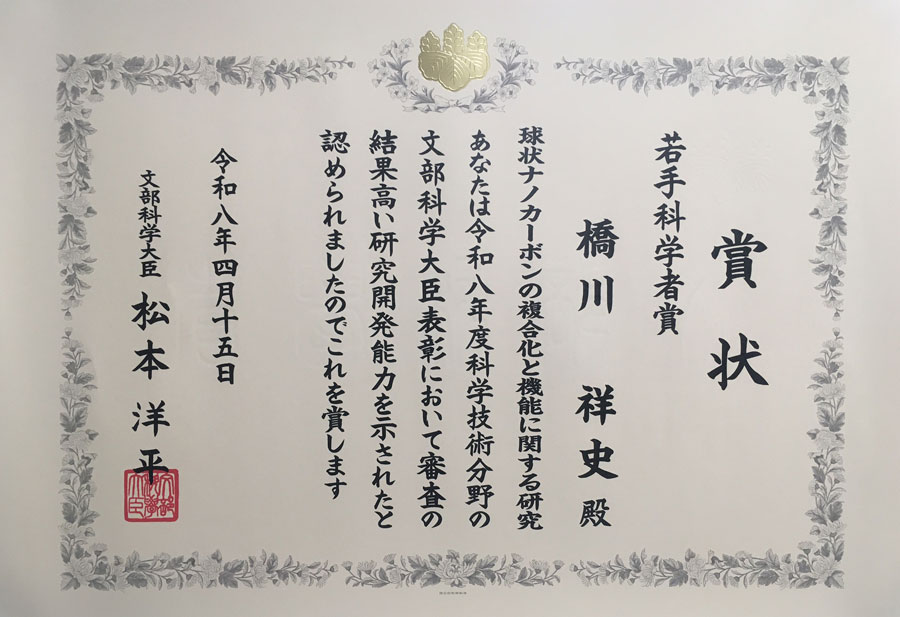 賞状
若手科学者賞
橋川 祥史 殿
球状ナノカーボンの複合化と機能に関する研究
あなたは令和八年度科学技術分野の
文部科学大臣表彰において審査の
結果高い研究開発能力を示されたと
認められましたのでこれを賞します
令和八年四月十五日
文部科学大臣 松本洋平